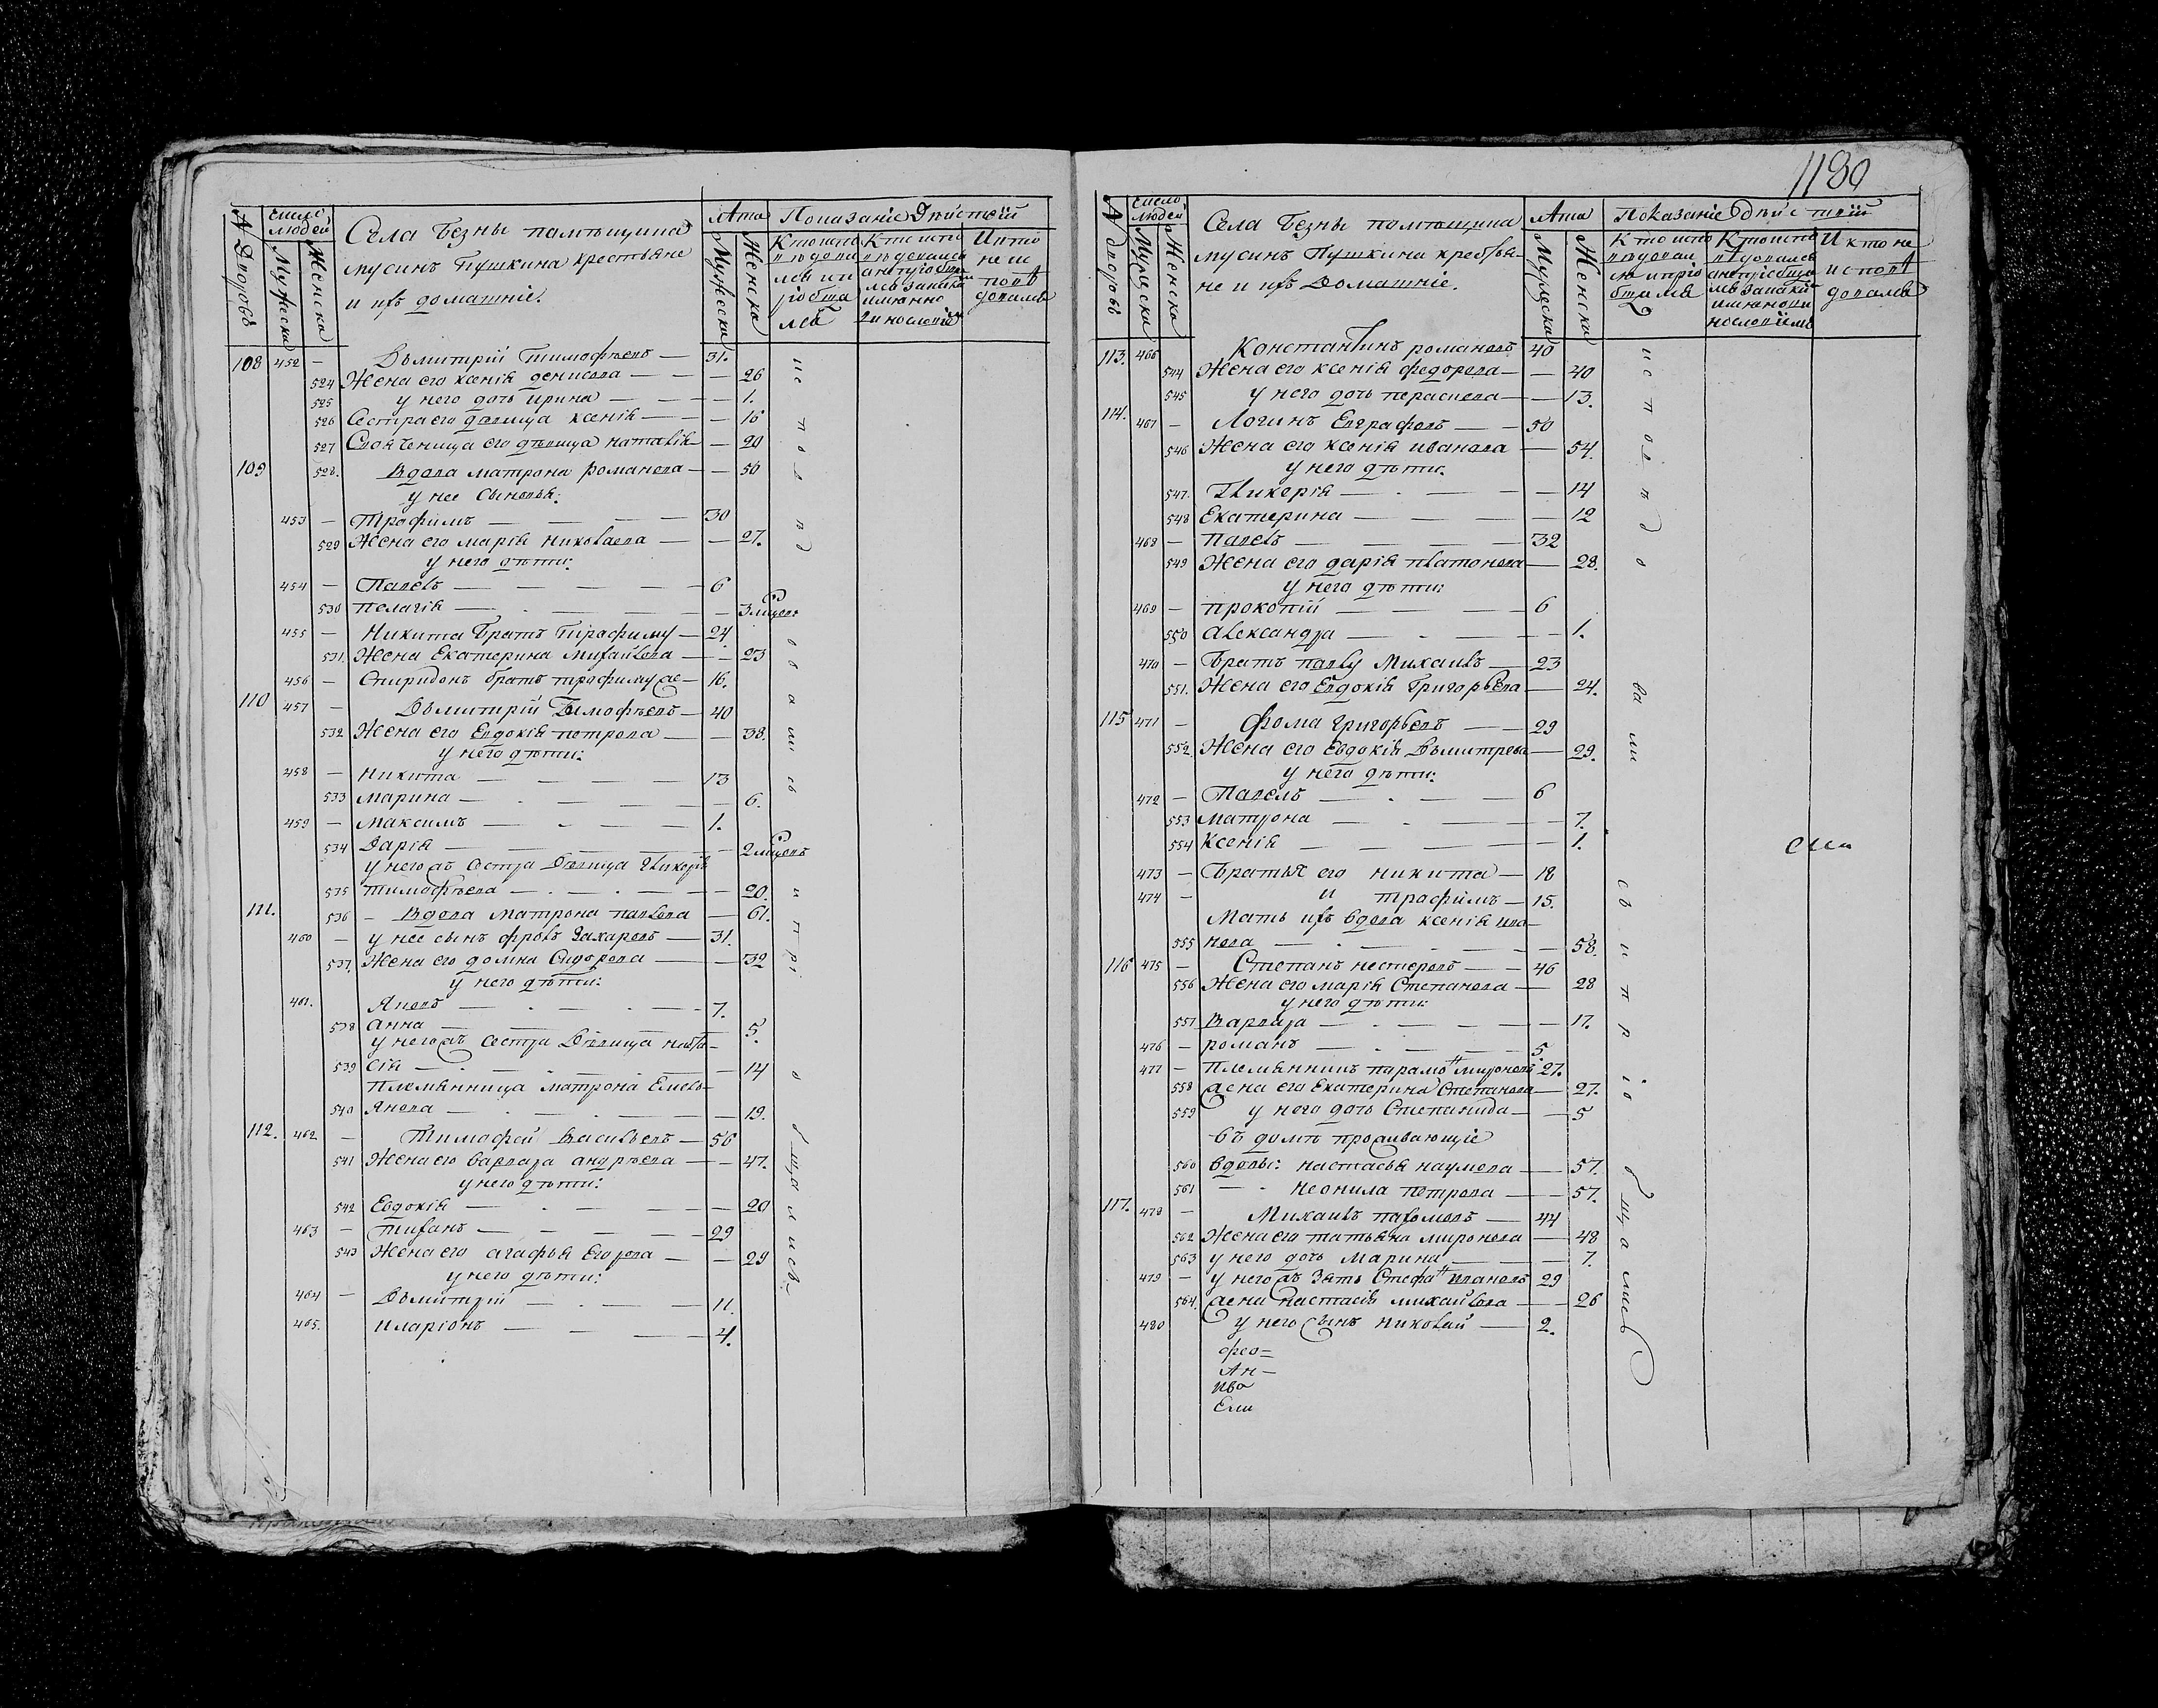 1180
Села Безны помѣщика
мусинъ Пушкина крестьяне
и ихъ домашніе.
Лѣта Показаніе Дѣйствій
108 452 — Дъмитрій Тимофѣевъ — 31.
524 Жена его ксенія денисова — — 26
525 у него дочь ирина — — 1.
526 Сестра его дѣвица ксенія — — 16
527 Своячепица его дѣвица наталія — 20
109 528. Вдова матрона романова — — 50
у нее сыновья:
453 — Трофимъ — — — 30
529 Жена его марія николаева — — 27.
у него дѣти:
454 — Павелъ — — — 6
530 пелагія — — — 3 мѣсецовъ
455 — Никита братъ Трафиму — 24.
531. Жена Екатерина михайлова — — 23
456 — Спиридонъ братъ трофиму же — 16.
110 457 — Дъмитрій Тимофѣевъ — 40
532 Жена его Евдокія петрова — — 38.
у него дѣти:
458 — Никита — — — 13
533 Марина — — — 6.
459 — Максимъ — — — 1.
534 Дарія — — — 2 мѣсецовъ
у него жъ сестра дѣвица гликерія
535 тимофѣева — — — 20.
111. 536 — Вдова матрона павлова — 61.
460 — у нее сынъ фролъ Захаровъ — 31.
537. Жена его домна Сидорова — — 32
у него дѣти:
461. Яковъ — — — 7.
538 анна — — — 5.
у него жъ сестра Дѣвица наста-
539 сія — — — 14
племянница матрона Емель-
540 янова — — — 19.
112. 462 — Тимофей Васильевъ — 56
541 Жена его варвара андрѣева — — 47.
у него дѣти:
542 Евдокія — — — 20
463 — Тиханъ — — — 29
543 Жена его агафья Егорова — — 29
у него дѣти:
464 — Дъмитрій — — — 11.
465. иларіонъ — — — 4.
исповѣдовались и пріобщались
Села Безны помѣщика
мусинъ Пушкина крестья-
не и ихъ Домашніе.
Лѣта Показаніе дѣйствій
113. 466 Константинъ романовъ 40
544 Жена его ксенія федорова — — 40
545 у него дочь парасиева — — 13.
114. 467 — Логинъ Евграфовъ — — 50
546 Жена его ксенія иванова — 54.
у него дѣти:
547. Гликерія — — — 14
548 Екатерина — — — 12
468 — Павелъ — — — 32
549 Жена его дарія платонова — 28.
у него дѣти:
469 — прокопій — — — 6
550 александра — — — 1.
470 — братъ павлу Михаилъ — 23
551. Жена его Евдокія Григорьева — 24.
115 471 — фома григорьевъ — — 29
552 Жена его Евдокія Дъмитрева — 29.
у него дѣти:
472 — Павелъ — — — 6
553 матрона — — — 7.
554 ксенія — — — 1.
473 — Братья его никита — 18
474 — и трафимъ — 15.
Мать ихъ вдова ксенія ива-
555 нова — — — 58.
116 475 — Степанъ нестеровъ — — 46
556 Жена его марія Степанова — 28
у него дѣти:
557 Варвара — — — 17.
476 — романъ — — — 5.
477 — Племянникъ парамонъ мироновъ 27.
558 жена его Екатерина Степанова — 27.
559 у него дочь Степанида — — 5
въ домѣ проживающіе
560 вдовы: настасья наумова — 57.
561 — неонила петрова — — 57.
117. 478 — Михаилъ пахомовъ — 44
562 Жена его татьяна миронова — 48
563 у него дочь Марина — — 7.
479 — у него жъ зять Стефанъ ивановъ 29
564. жена настасія михайлова — — 26
480 у него сынъ николай — 2.
исповѣдовались и пріобщались
фео=
Ан—
иво
Ели